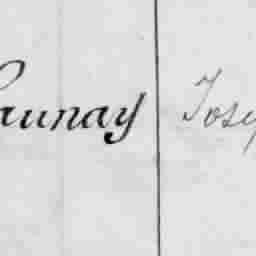 Launay Josep